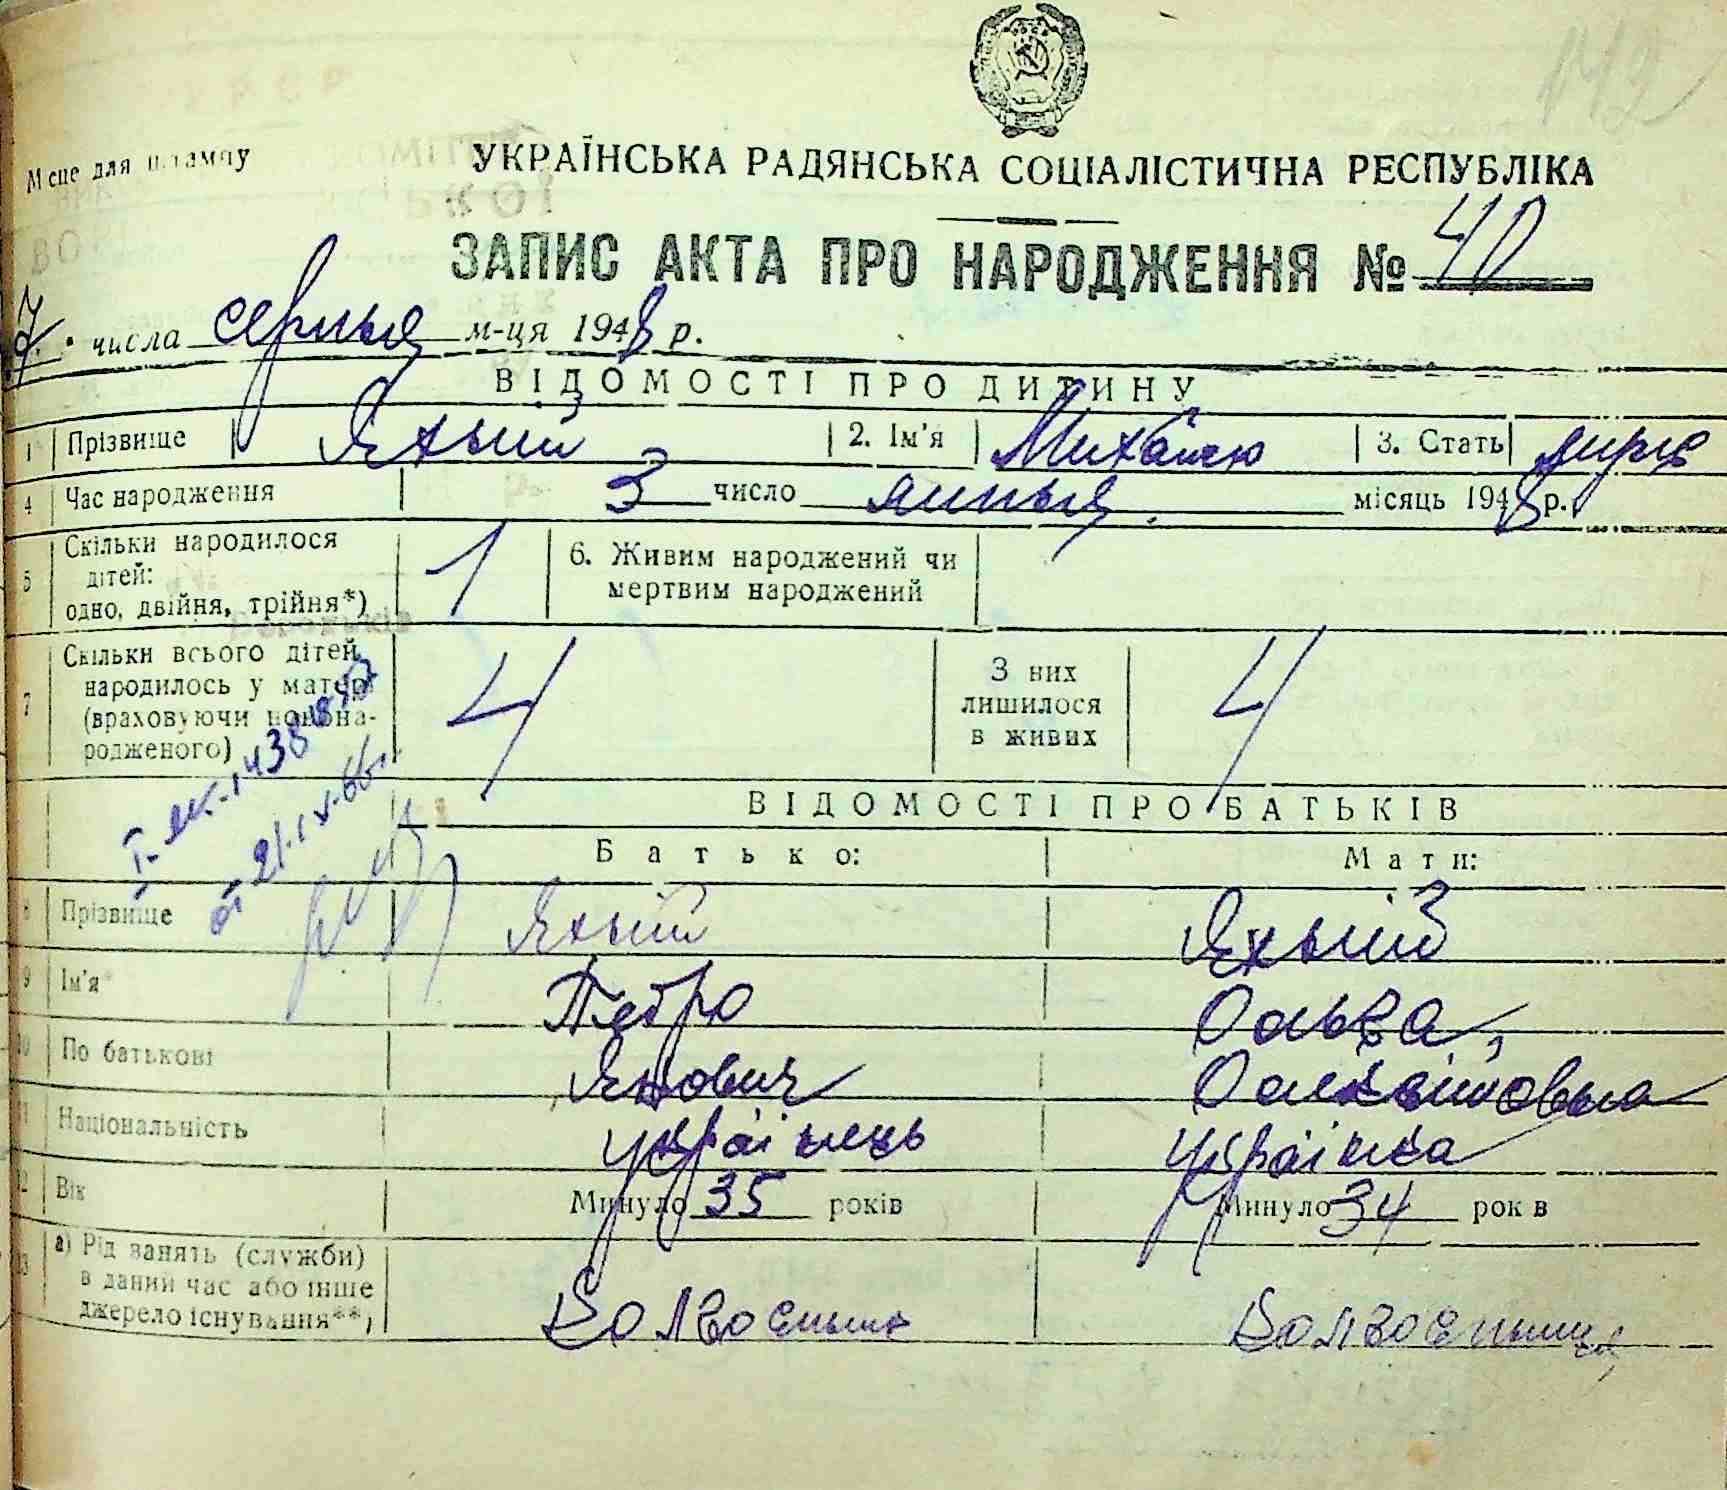 142
Місце для штампу
УКРАЇНСЬКА РАДЯНСЬКА СОЦІАЛІСТИЧНА РЕСПУБЛІКА
ЗАПИС АКТА ПРО НАРОДЖЕННЯ № 40
7 числа серпня м-ця 1948 р.
ВІДОМОСТІ ПРО ДИТИНУ
1 Прізвище Яхній 2. Ім'я Михайло 3. Стать
4 Час народження 3 число липня місяць 1948 р.
5 Скільки народилося
дітей:
одно, двійня, трійня*) 1 6. Живим народжений чи
мертвим народжений
7 Скільки всього дітей
народилось у матері
(враховуючи новона-
родженого) 4 З них
лишилося
в живих 4
от 21.IX-66г.
ВІДОМОСТІ ПРО БАТЬКІВ
Батько: Мати:
8 Прізвище Яхній Яхній
9 Ім'я Петро Ольга
10 По батькові Янович
11 Національність українець українка
12 Вік Минуло 35 років Минуло 34 рок в
13 а) Рід занять (служби)
в даний час або інше
джерело існування**) Колгоспник Колгоспниця